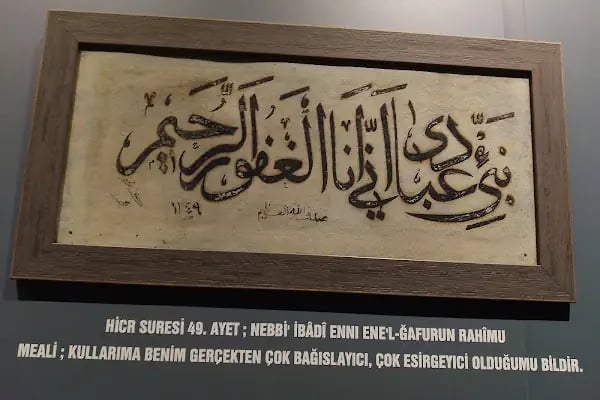 نبئ عبادى انى انا الغفور الرحيم
صدق الله العظيم
١١٤٩
HİCR SURESİ 49. AYET ; NEBBİ' İBÂDÎ ENNI ENE'L-ĞAFURUN RAHÎMU
MEALİ ; KULLARIMA BENİM GERÇEKTEN ÇOK BAĞIŞLAYICI, ÇOK ESİRGEYİCİ OLDUĞUMU BİLDİR.